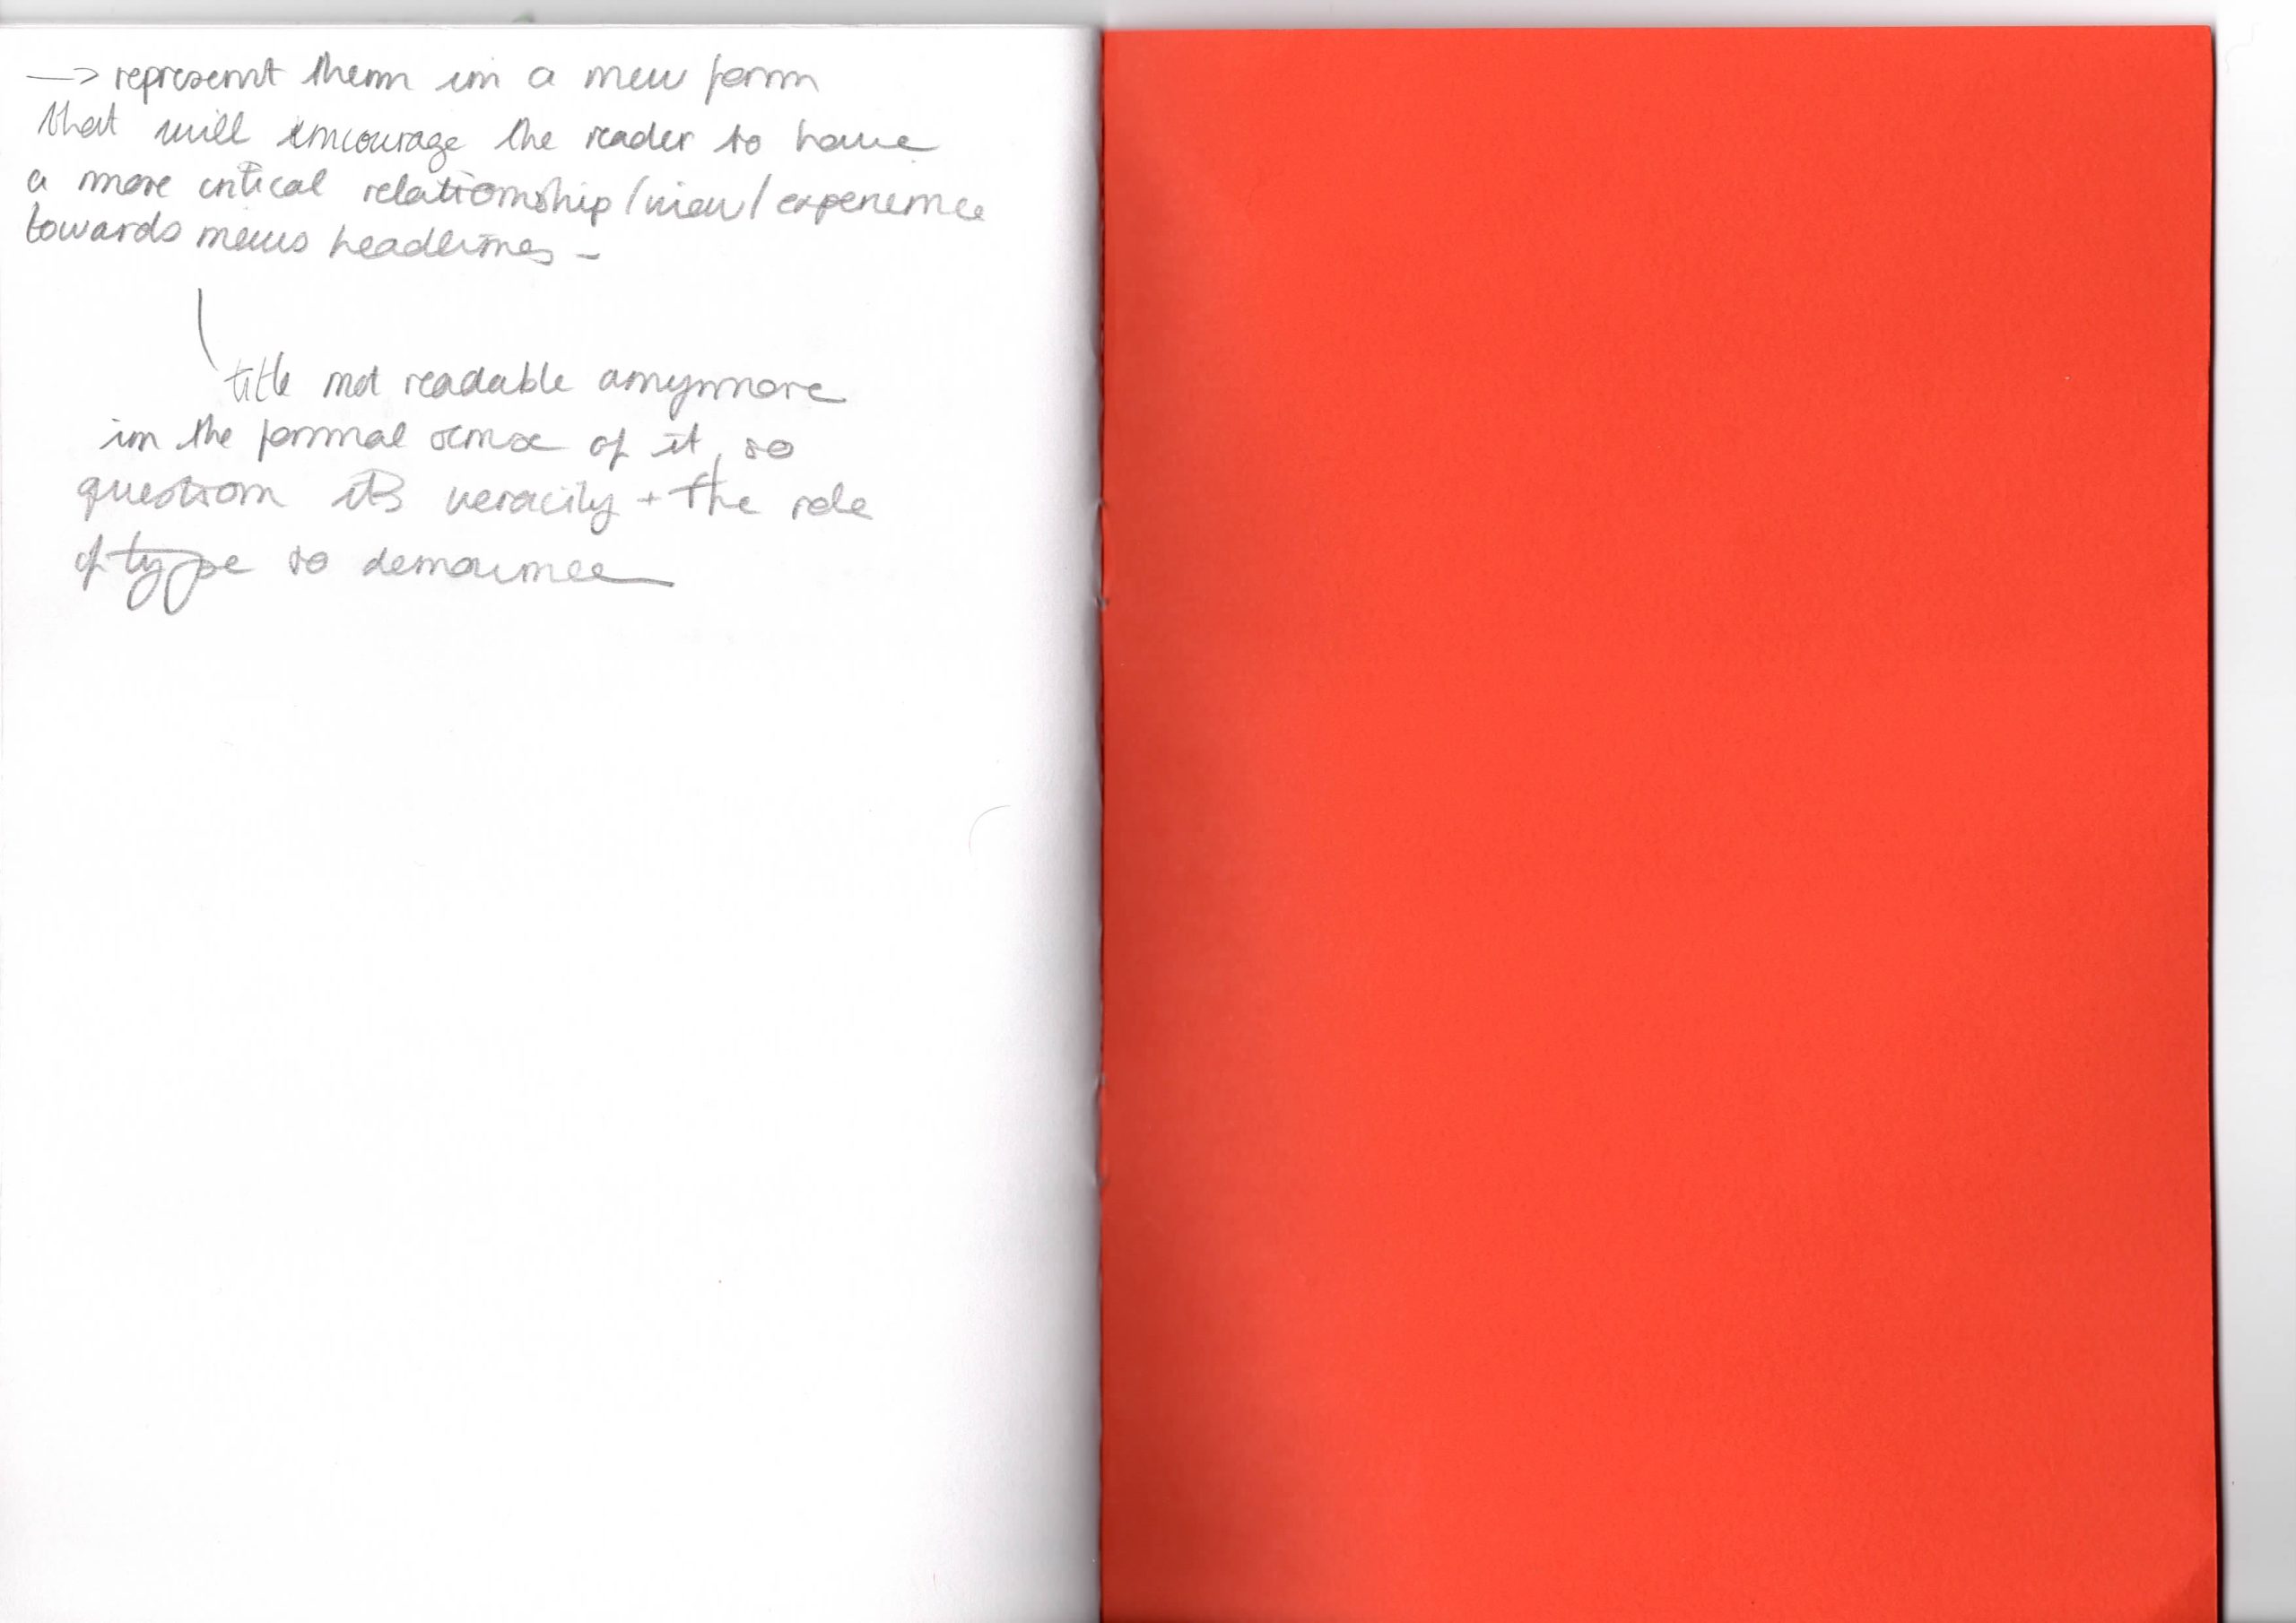 —> represent them in a new form
that will encourage the reader to have
a more critical relationship / view / experience
towards news headlines -
title not readable anymore
in the formal sense of it, so
question its veracity + the role
of type to denounce